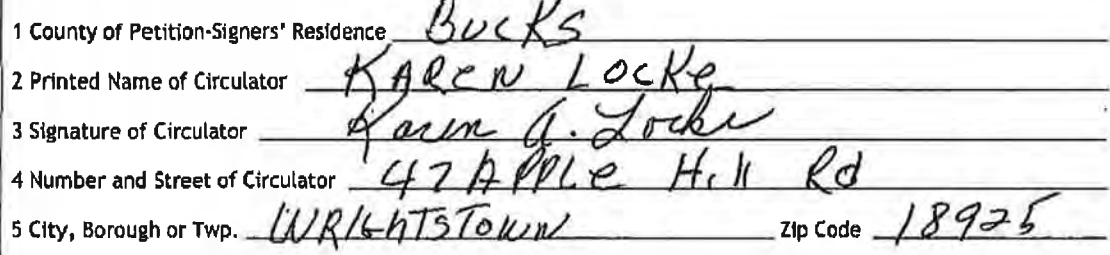 1 County of Petition-Signers' Residence Bucks
2 Printed Name of Circulator KAREN LOCKe
3 Signature of Circulator Karen A. Locke
4 Number and Street of Circulator 47 APPLe Hill Rd
5 City, Borough or Twp. WRIGhTSTOWN Zip Code 18925